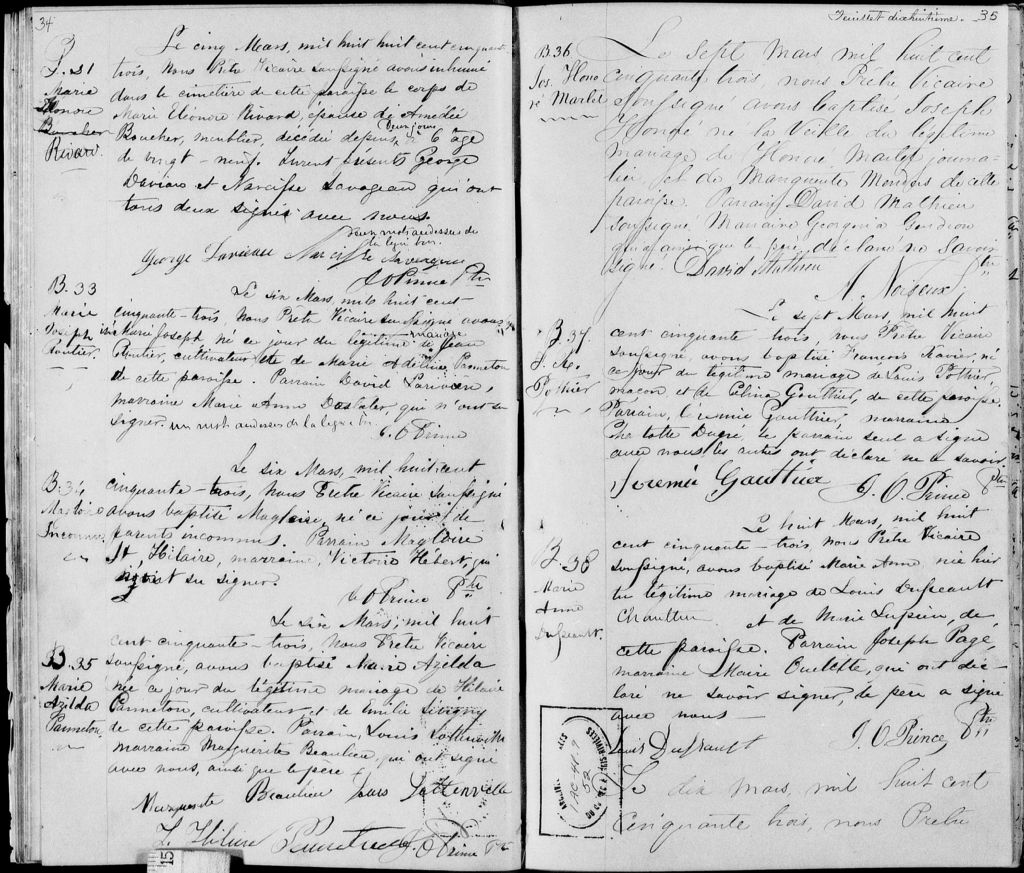 34
S. 31
Marie
Eléonore
Boucher
Rivard.
Le cinq Mars, mil huit huit cent cinquante
trois, Nous Prêtre Vicaire soussigné avons inhumé
dans le cimetière de cette paroisse le corps de
Marie Eléonore Rivard, épouse de Amédée
Boucher, meublier, décédée depuis deux jours, a 6 âge
de vingt-neuf. Furent présents George
et Narcisse Savageau qui ont
tous deux signés avec nous.
deux mots audessus de
la ligne bon.
George Narcisse
J. O Prince Ptre
B. 33
Marie
Joseph
Routier.
Le six Mars, mil huit cent
cinquante-trois, Nous Prêtre Vicaire soussigné avons
Marie Joseph, né ce jour du légitime mariage de Jean
Routier, cultivateur et de Marie Adéline Panneton
de cette paroisse. Parrain David Larivière,
marraine Marie Anne qui n'ont su
signer. un mot audessus de la ligne bon.
J. O Prince
B. 34
Magloire
Inconnu
Le six Mars, mil huit cent
cinquante-trois, Nous Prêtre Vicaire soussigné
avons baptisé Magloire, né ce jour de
parents inconnus. Parrain Magloire
St, Hilaire, marraine, Victoire Hébert, qui
n'ont su signer.
J. O Prince Ptre
B. 35
Marie
Azilda
Panneton
Le six Mars, mil huit
cent cinquante-trois, Nous Prêtre Vicaire
soussigné, avons baptisé Marie Azilda
née ce jour du légitime mariage de Hilaire
Panneton, cultivateur et de Emilie Sévigny
de cette paroisse. Parrain, Louis Lottinville
marraine Marguerite Beaulieu, qui ont signé
avec nous, ainsi que le père.
Marguerite Beaulieu Louis Lottinville
Panneton J. O Prince Ptre
15
Feuillet dixhuitième. 35
B. 36
Jos. Hono
ré Martel
Le sept mars mil huit cent
cinquante trois nous Prêtre Vicaire
soussigné avons baptisé Joseph
Honoré né la veille du légitime
mariage de Honoré Martel journa-
lier, et de Marguerite de cette
paroisse. Parrain David Mathieu
soussigné, Marraine Georgina Gendron
qui ainsi que le père, déclare ne savoir
signé. David Mathieu
A. Noiseux Ptre
B. 37.
F. X.
Pothier
Le sept Mars, mil huit
cent cinquante trois, nous Prêtre Vicaire
soussigné, avons baptisé François Xavier, né
ce jour du légitime mariage de Louis Pothier,
maçon et de Célina Gouthier, de cette paroisse.
Parrain, Jérémie Gauthier, marraine
Charlotte Dugré, le parrain seul a signé
avec nous les autres ont déclaré ne le savoir.
Jérémie Gauthier J. O. Prince Ptre
B. 38
Marie
Anne
Dusseault.
Le huit Mars, mil huit
cent cinquante-trois, nous Prêtre Vicaire
soussigné, avons baptisé Marie Anne, née hier
du légitime mariage de Louis Dusseault
et de Marie Lupien, de
cette paroisse. Parrain Joseph Pagé,
marraine Marie Ouelette, qui ont dé-
claré ne savoir signer, le père a signé
avec nous
Louis Dussault J. O. Prince, Ptre
Le dix mars, mil huit cent
cinquante trois, nous Prêtre